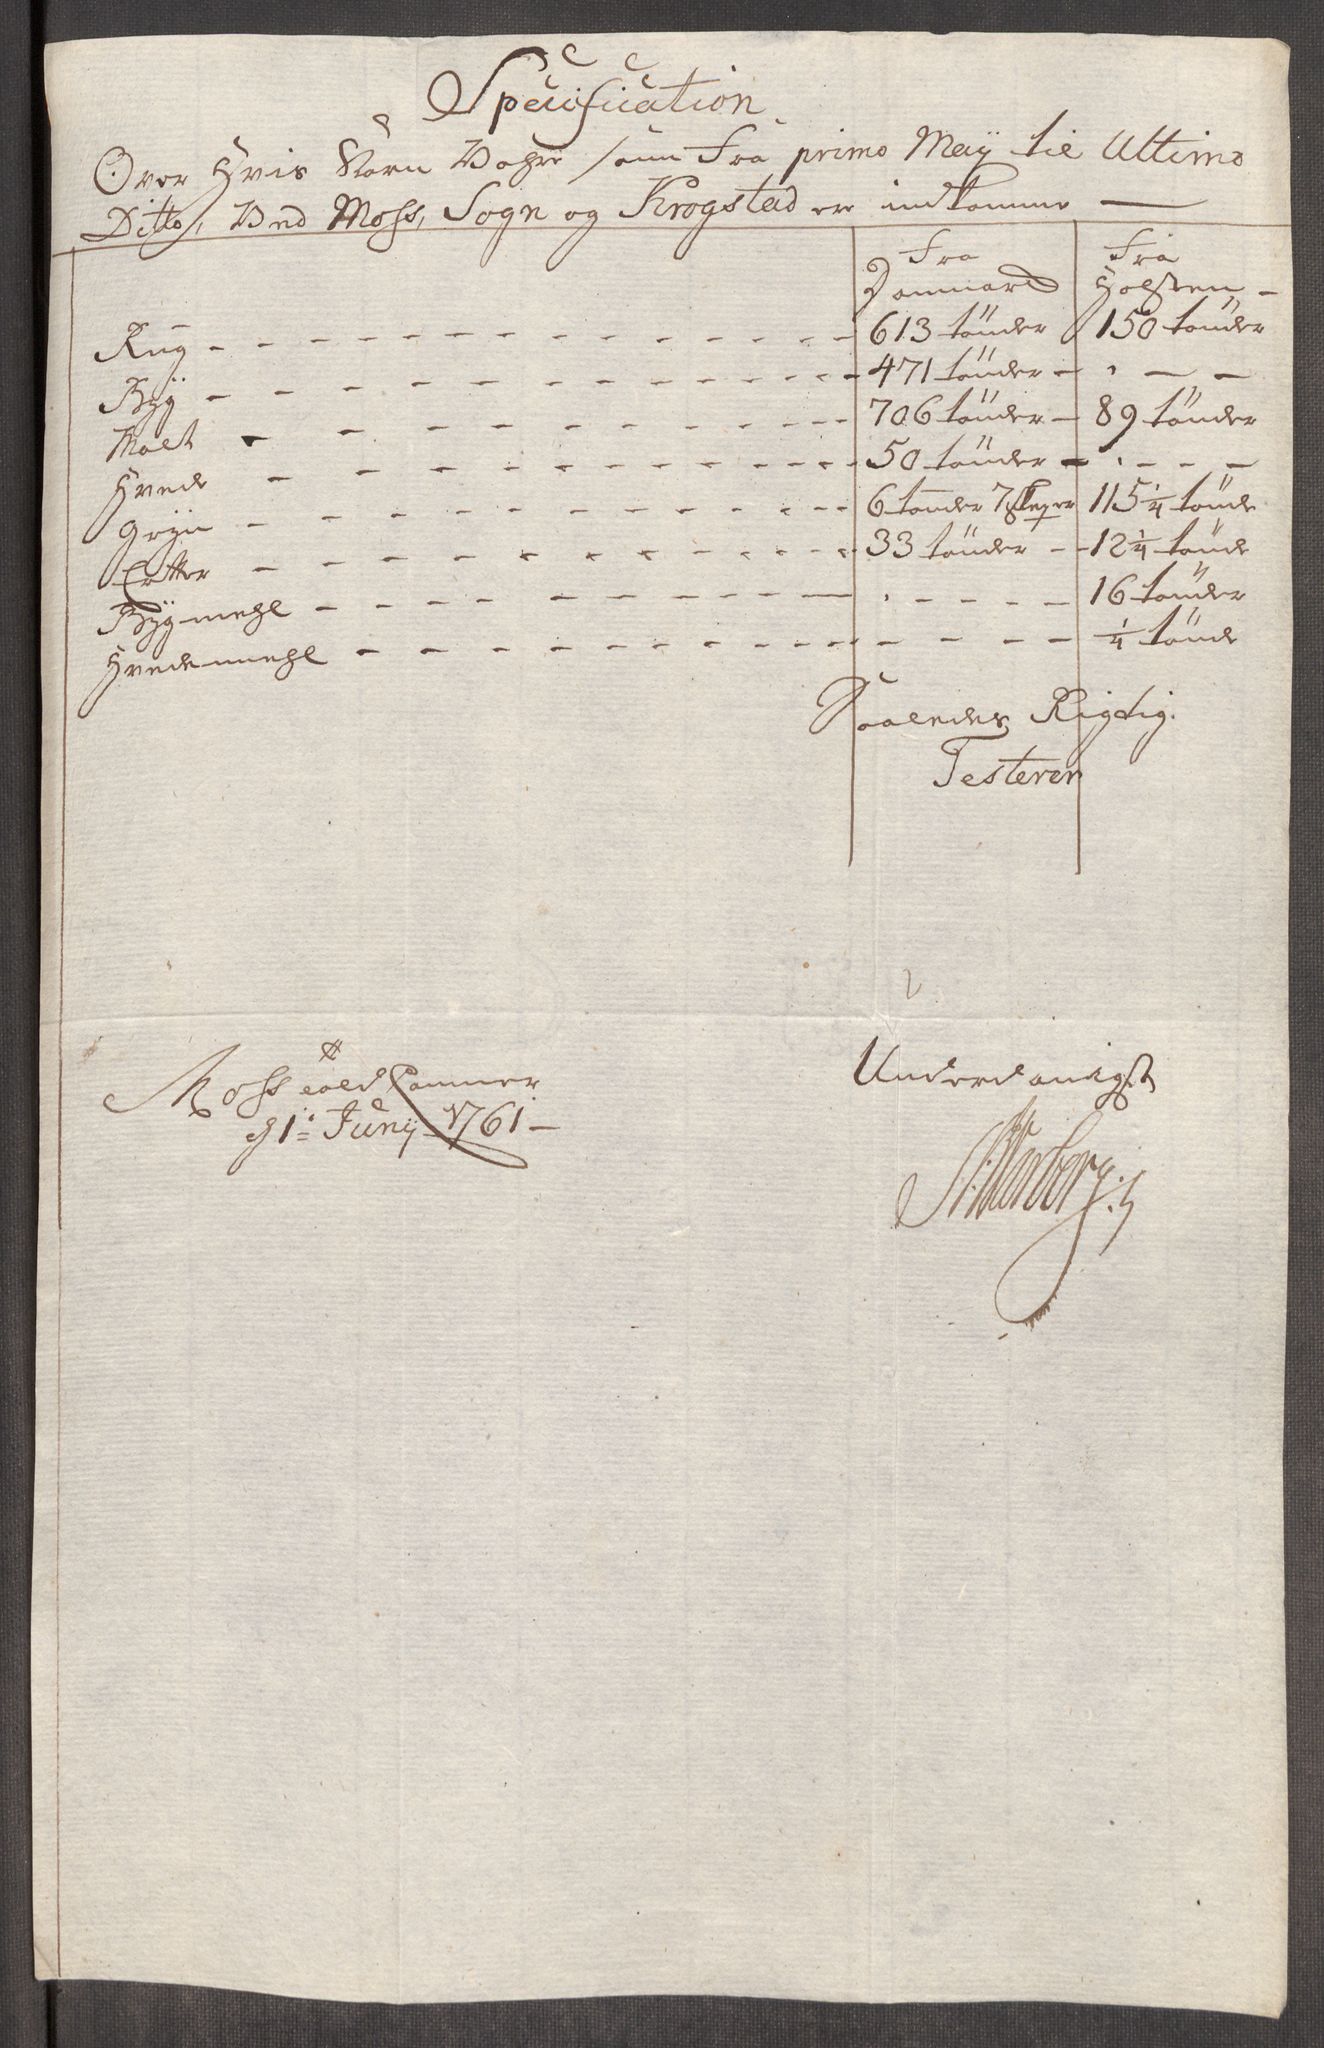 Specification
Over Hvis Korn Vahre som Fra primo Maij til Ultimo
Ditto, Ved Moss, Sogn og Krogstad er indkomme
Fra Danmarck Fra Holsten
Rug 613 tönder 150 tönder
Byg 471 tönder
Malt 706 tönder 89 tönder
Hvede 50 tönder
Gryn 6 tönder 7 skeper 115 1/4 tönde
Ertter 33 tönder 12 1/4 tönde
Bygmehl 16 tönder
Hvedemehl 1/4 tönde
Saaledes Rigtig
Testerer
Moss Told Cammer
d 1 Junij 1761
Underdanigst
Warberg